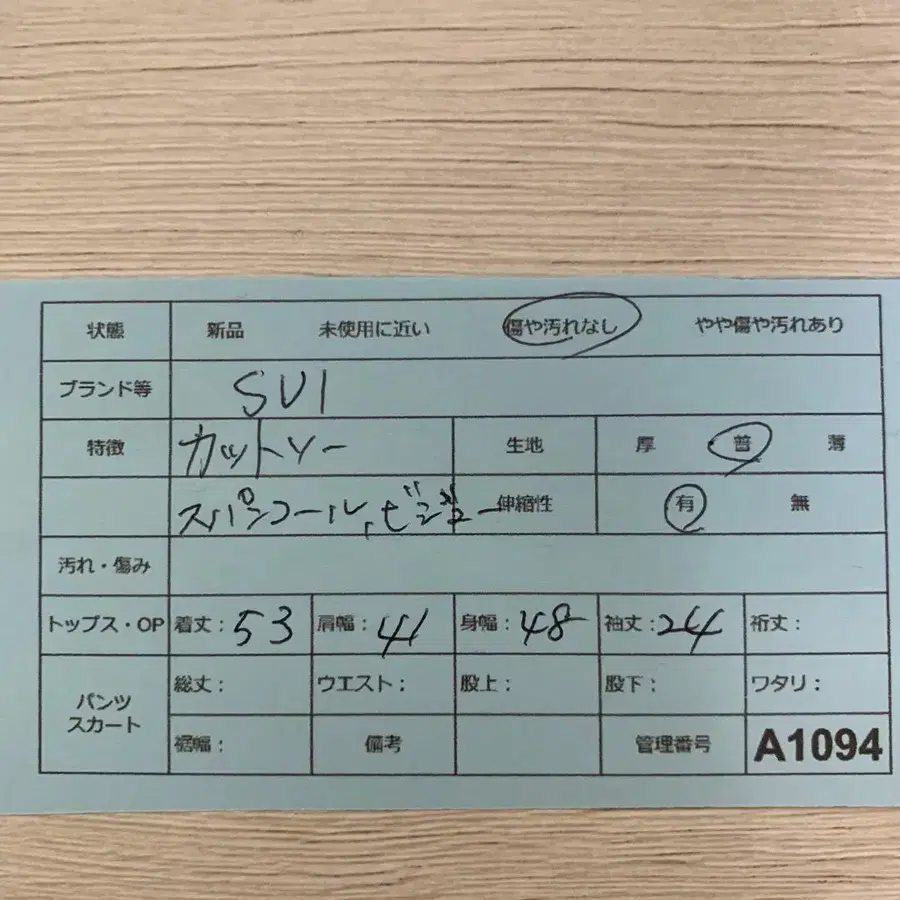 状態 新品 未使用に近い 傷や汚れなし やや傷や汚れあり
ブランド等 SUI
特徴 カットソー 生地 厚 普 薄
スパンコール,ビジュー 伸縮性 有 無
汚れ・傷み
トップス・OP 着丈:53 肩幅:41 身幅:48 袖丈:24 裄丈:
パンツ スカート 総丈: ウエスト: 股上: 股下: ワタリ:
裾幅: 備考 管理番号 A1094